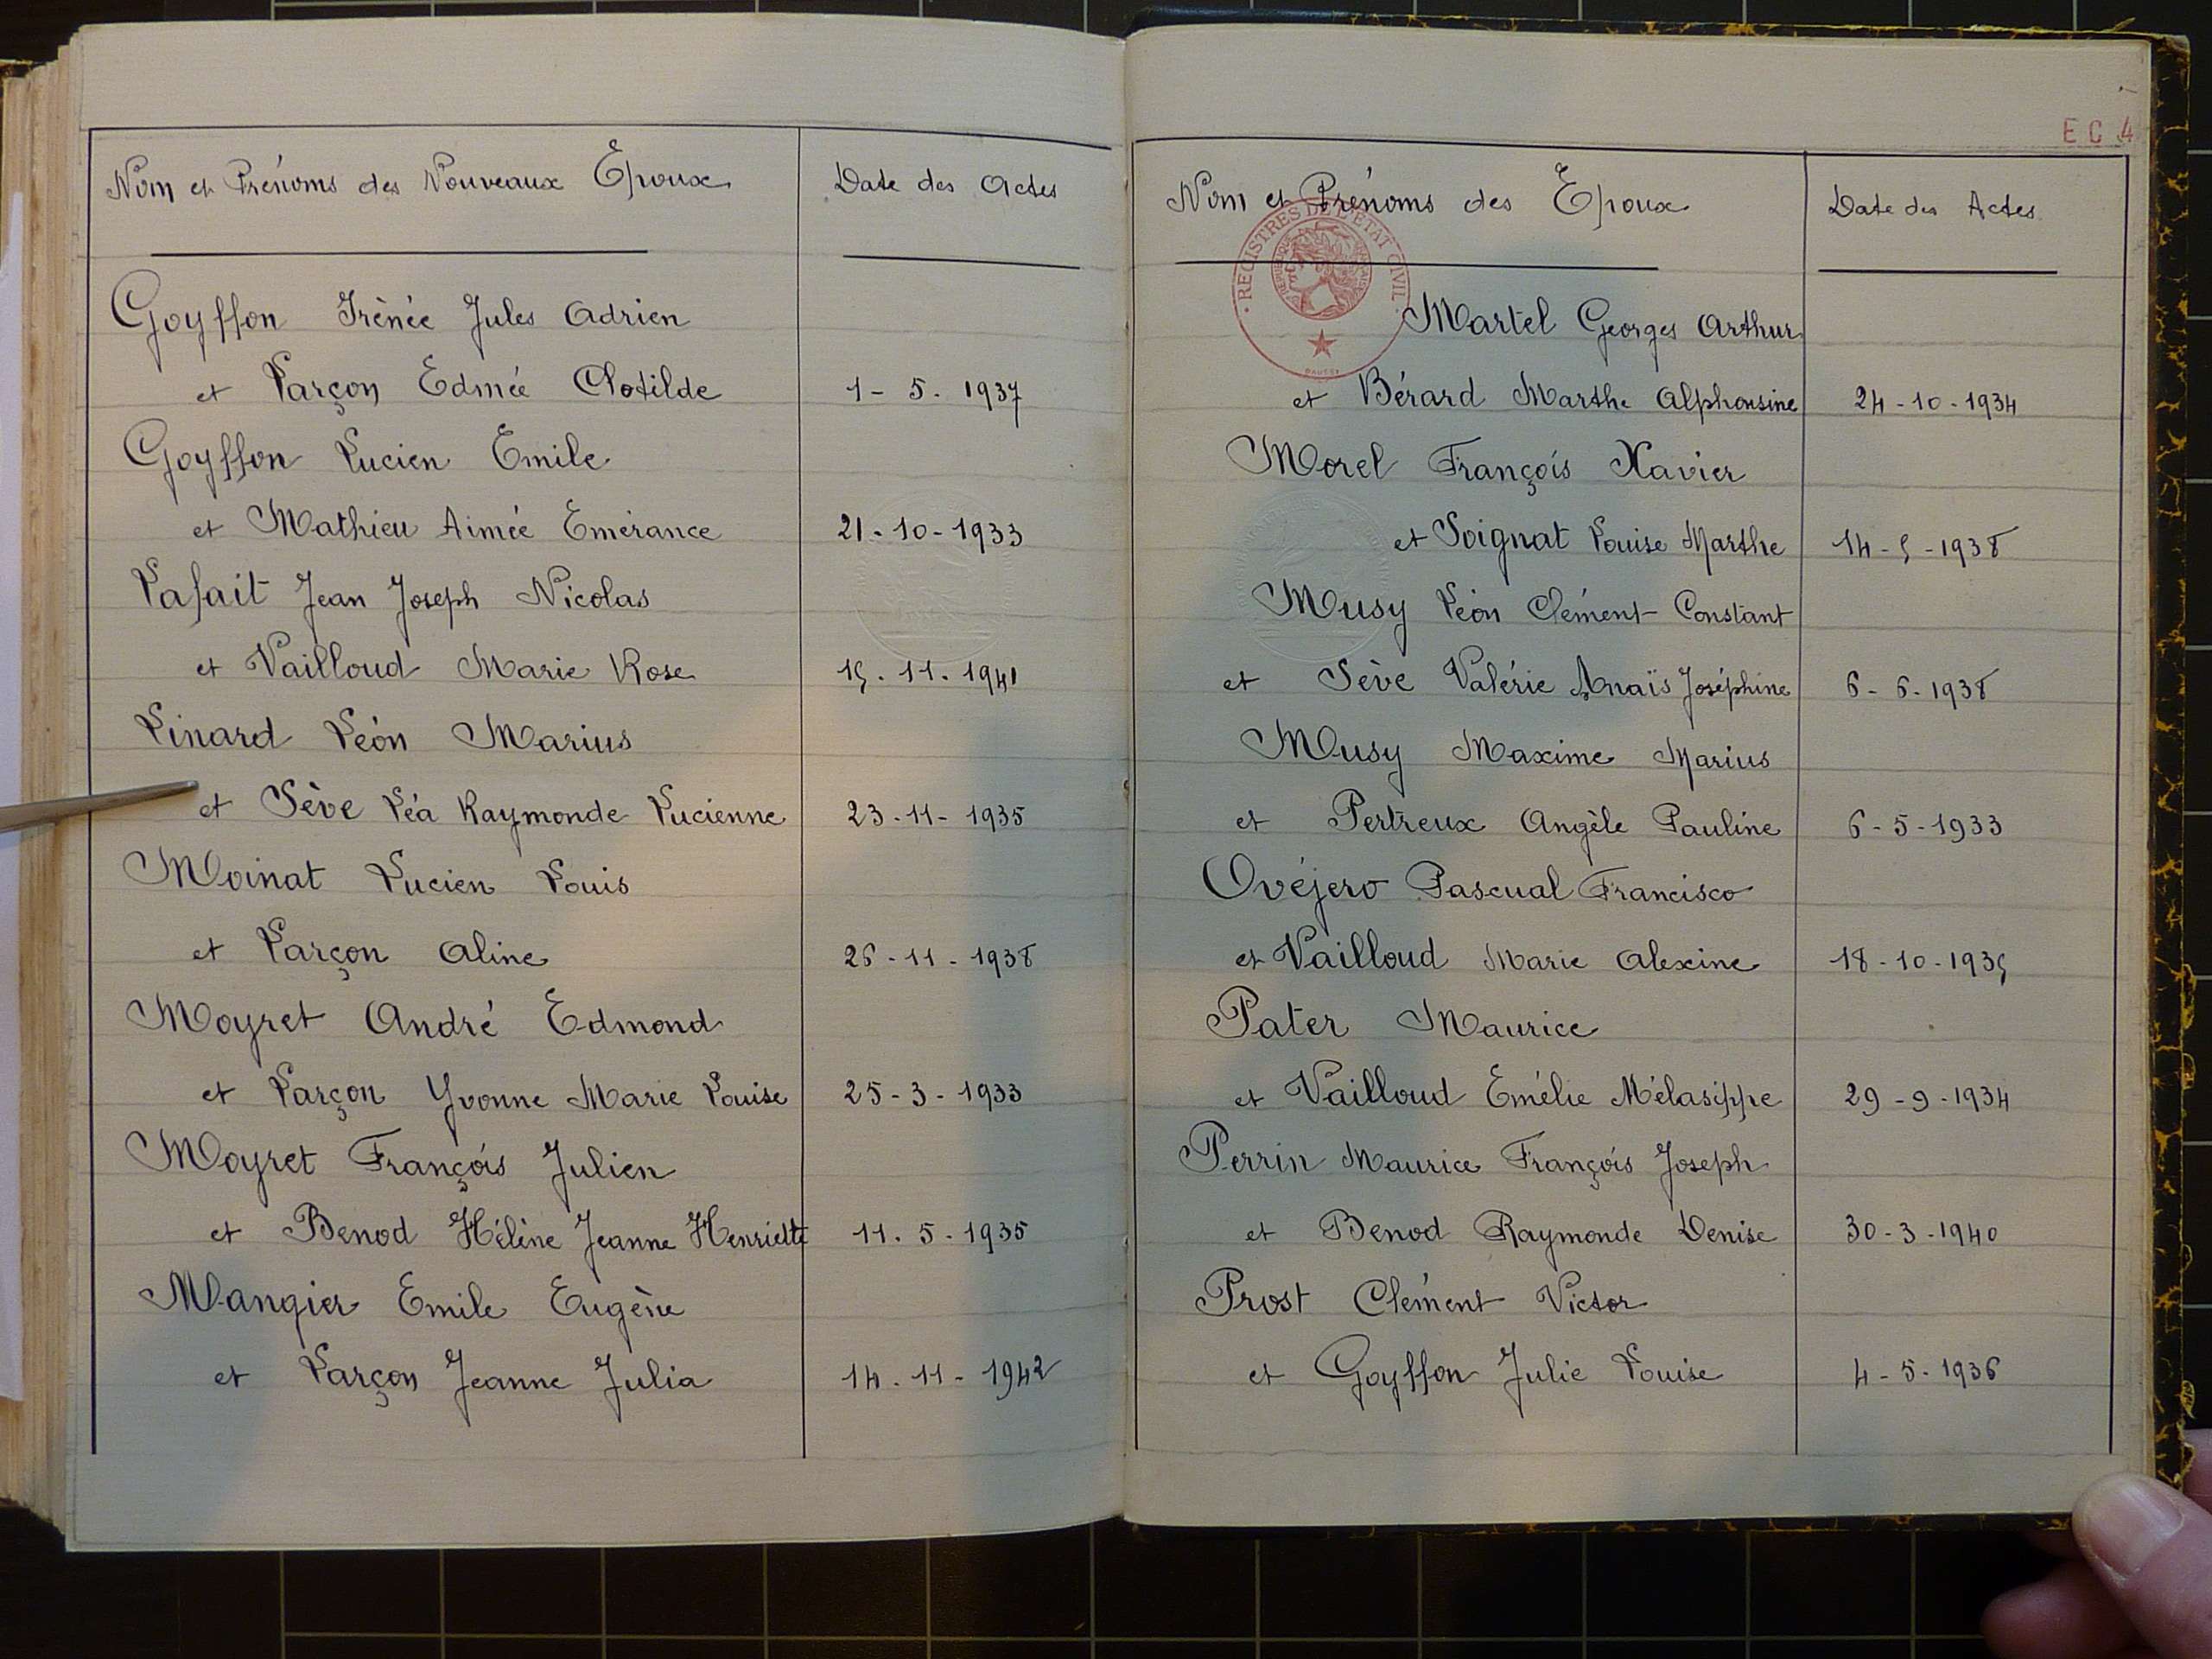 Nom et Prénoms des Nouveaux Epoux
Date des Actes
Goyffon Irènée Jules Adrien
et Larçon Edmée Clotilde 1 - 5 . 1937
Goyffon Lucien Emile
et Mathieu Aimée Emérance 21 - 10 - 1933
Lafait Jean Joseph Nicolas
et Vailloud Marie Rose 15 . 11 . 1941
Linard Léon Marius
et Sève Léa Raymonde Lucienne 23 - 11 - 1935
Moinat Lucien Louis
et Larçon Aline 26 - 11 - 1938
Moyret André Edmond
et Larçon Yvonne Marie Louise 25 - 3 - 1933
Moyret François Julien
et Benod Hélène Jeanne Henriette 11 . 5 - 1935
Mangier Emile Eugène
et Larçon Jeanne Julia 14 . 11 - 1942
E C 4
Nom et Prénoms des Epoux
Date des Actes
REGISTRES DE L'ETAT CIVIL
Martel Georges Arthur
et Bérard Marthe Alphonsine 24 - 10 - 1934
Morel François Xavier
et Soignat Louise Marthe 14 - 5 - 1938
Musy Léon Clément Constant
et Sève Valérie Anaïs Joséphine 6 - 6 - 1938
Musy Maxime Marius
et Pertreux Angèle Pauline 6 - 5 - 1933
Ovéjero Pascual Francisco
et Vailloud Marie Alexine 18 - 10 - 1935
Pater Maurice
et Vailloud Emélie Mélasippe 29 - 9 - 1934
Perrin Maurice François Joseph
et Benod Raymonde Denise 30 - 3 - 1940
Prost Clément Victor
et Goyffon Julie Louise 4 - 5 - 1936